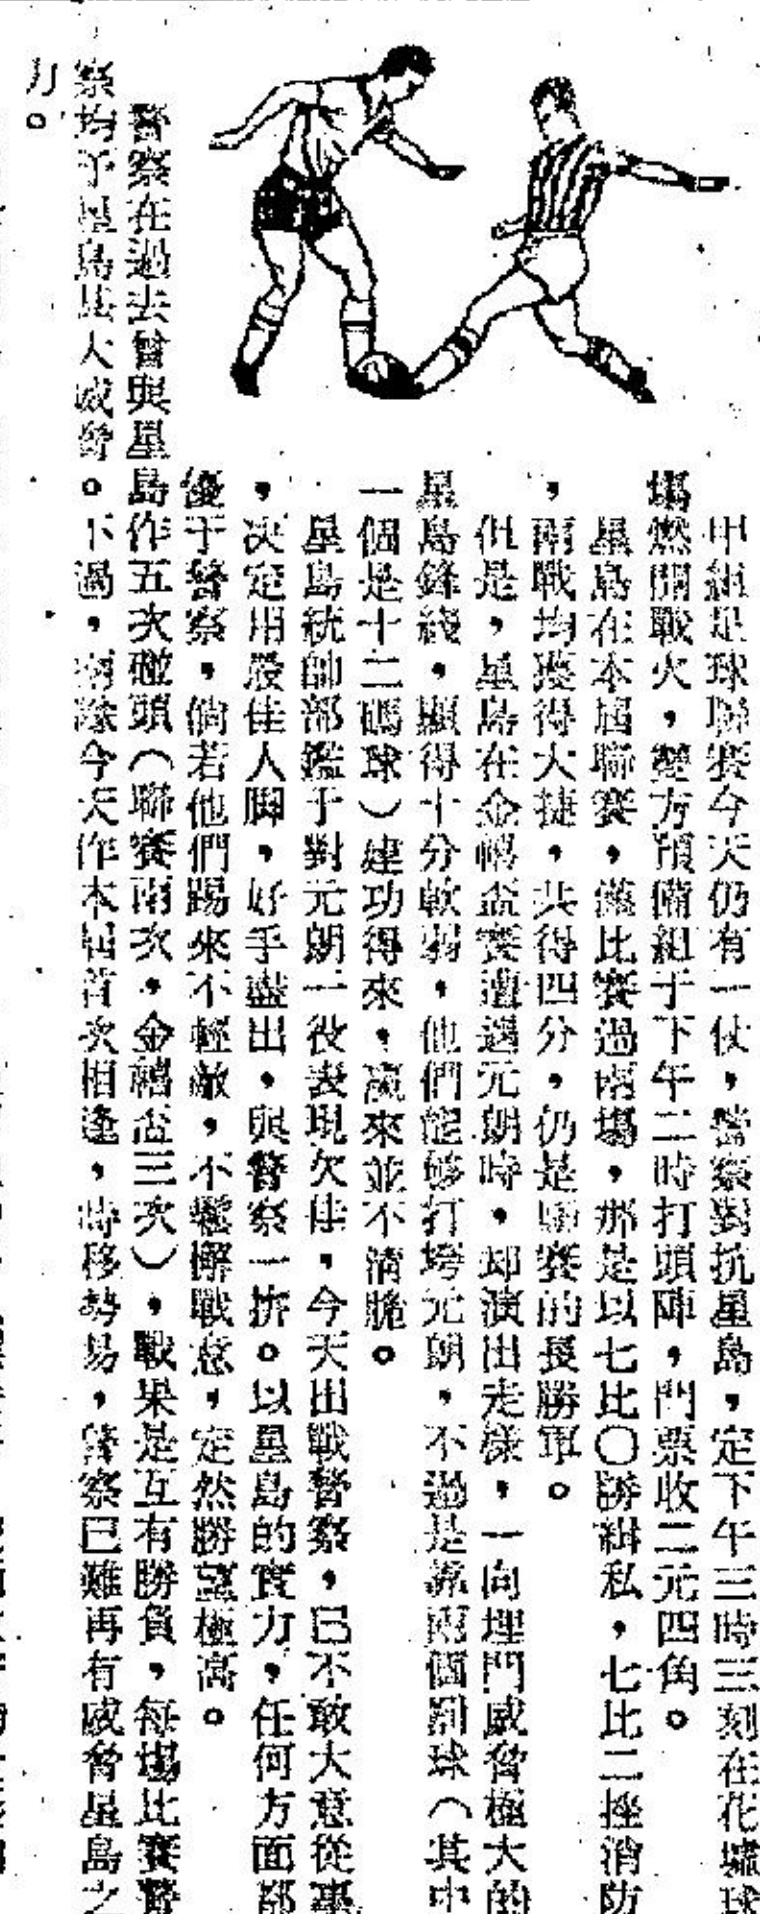 甲組足球聯賽今天仍有一仗，警察對抗星島，定下午三時三刻在花墟球
塲燃開戰火，雙方預備組于下午二時打頭陣，門票收二元四角。
星島在本屆聯賽，僅比賽過兩塲，那是以七比〇勝緝私，七比二挫消防
，兩戰均獲得大捷，共得四分，仍是聯賽的長勝軍。
但是，星島在金禧盃賽遭遇元朗時，却演出走樣，一向埋門威脅極大的
星島鋒綫，顯得十分軟弱，他們能够打垮元朗，不過是靠兩個罰球（其中
一個是十二碼球）建功得來，贏來並不清脆。
星島統帥部鑑于對元朗一役表現欠佳，今天出戰警察，已不敢大意從事
，决定用最佳人脚，好手盡出，與警察一拚。以星島的實力，任何方面都
優于警察，倘若他們踢來不輕敵，不鬆懈戰意，定然勝望極高。
警察在過去曾與星島作五次碰頭（聯賽兩次，金禧盃三次），戰果是互有勝負，每塲比賽警
察均予星島甚大威脅。不過，兩隊今天作本屆首次相逢，時移勢易，警察已難再有威脅星島之
力。